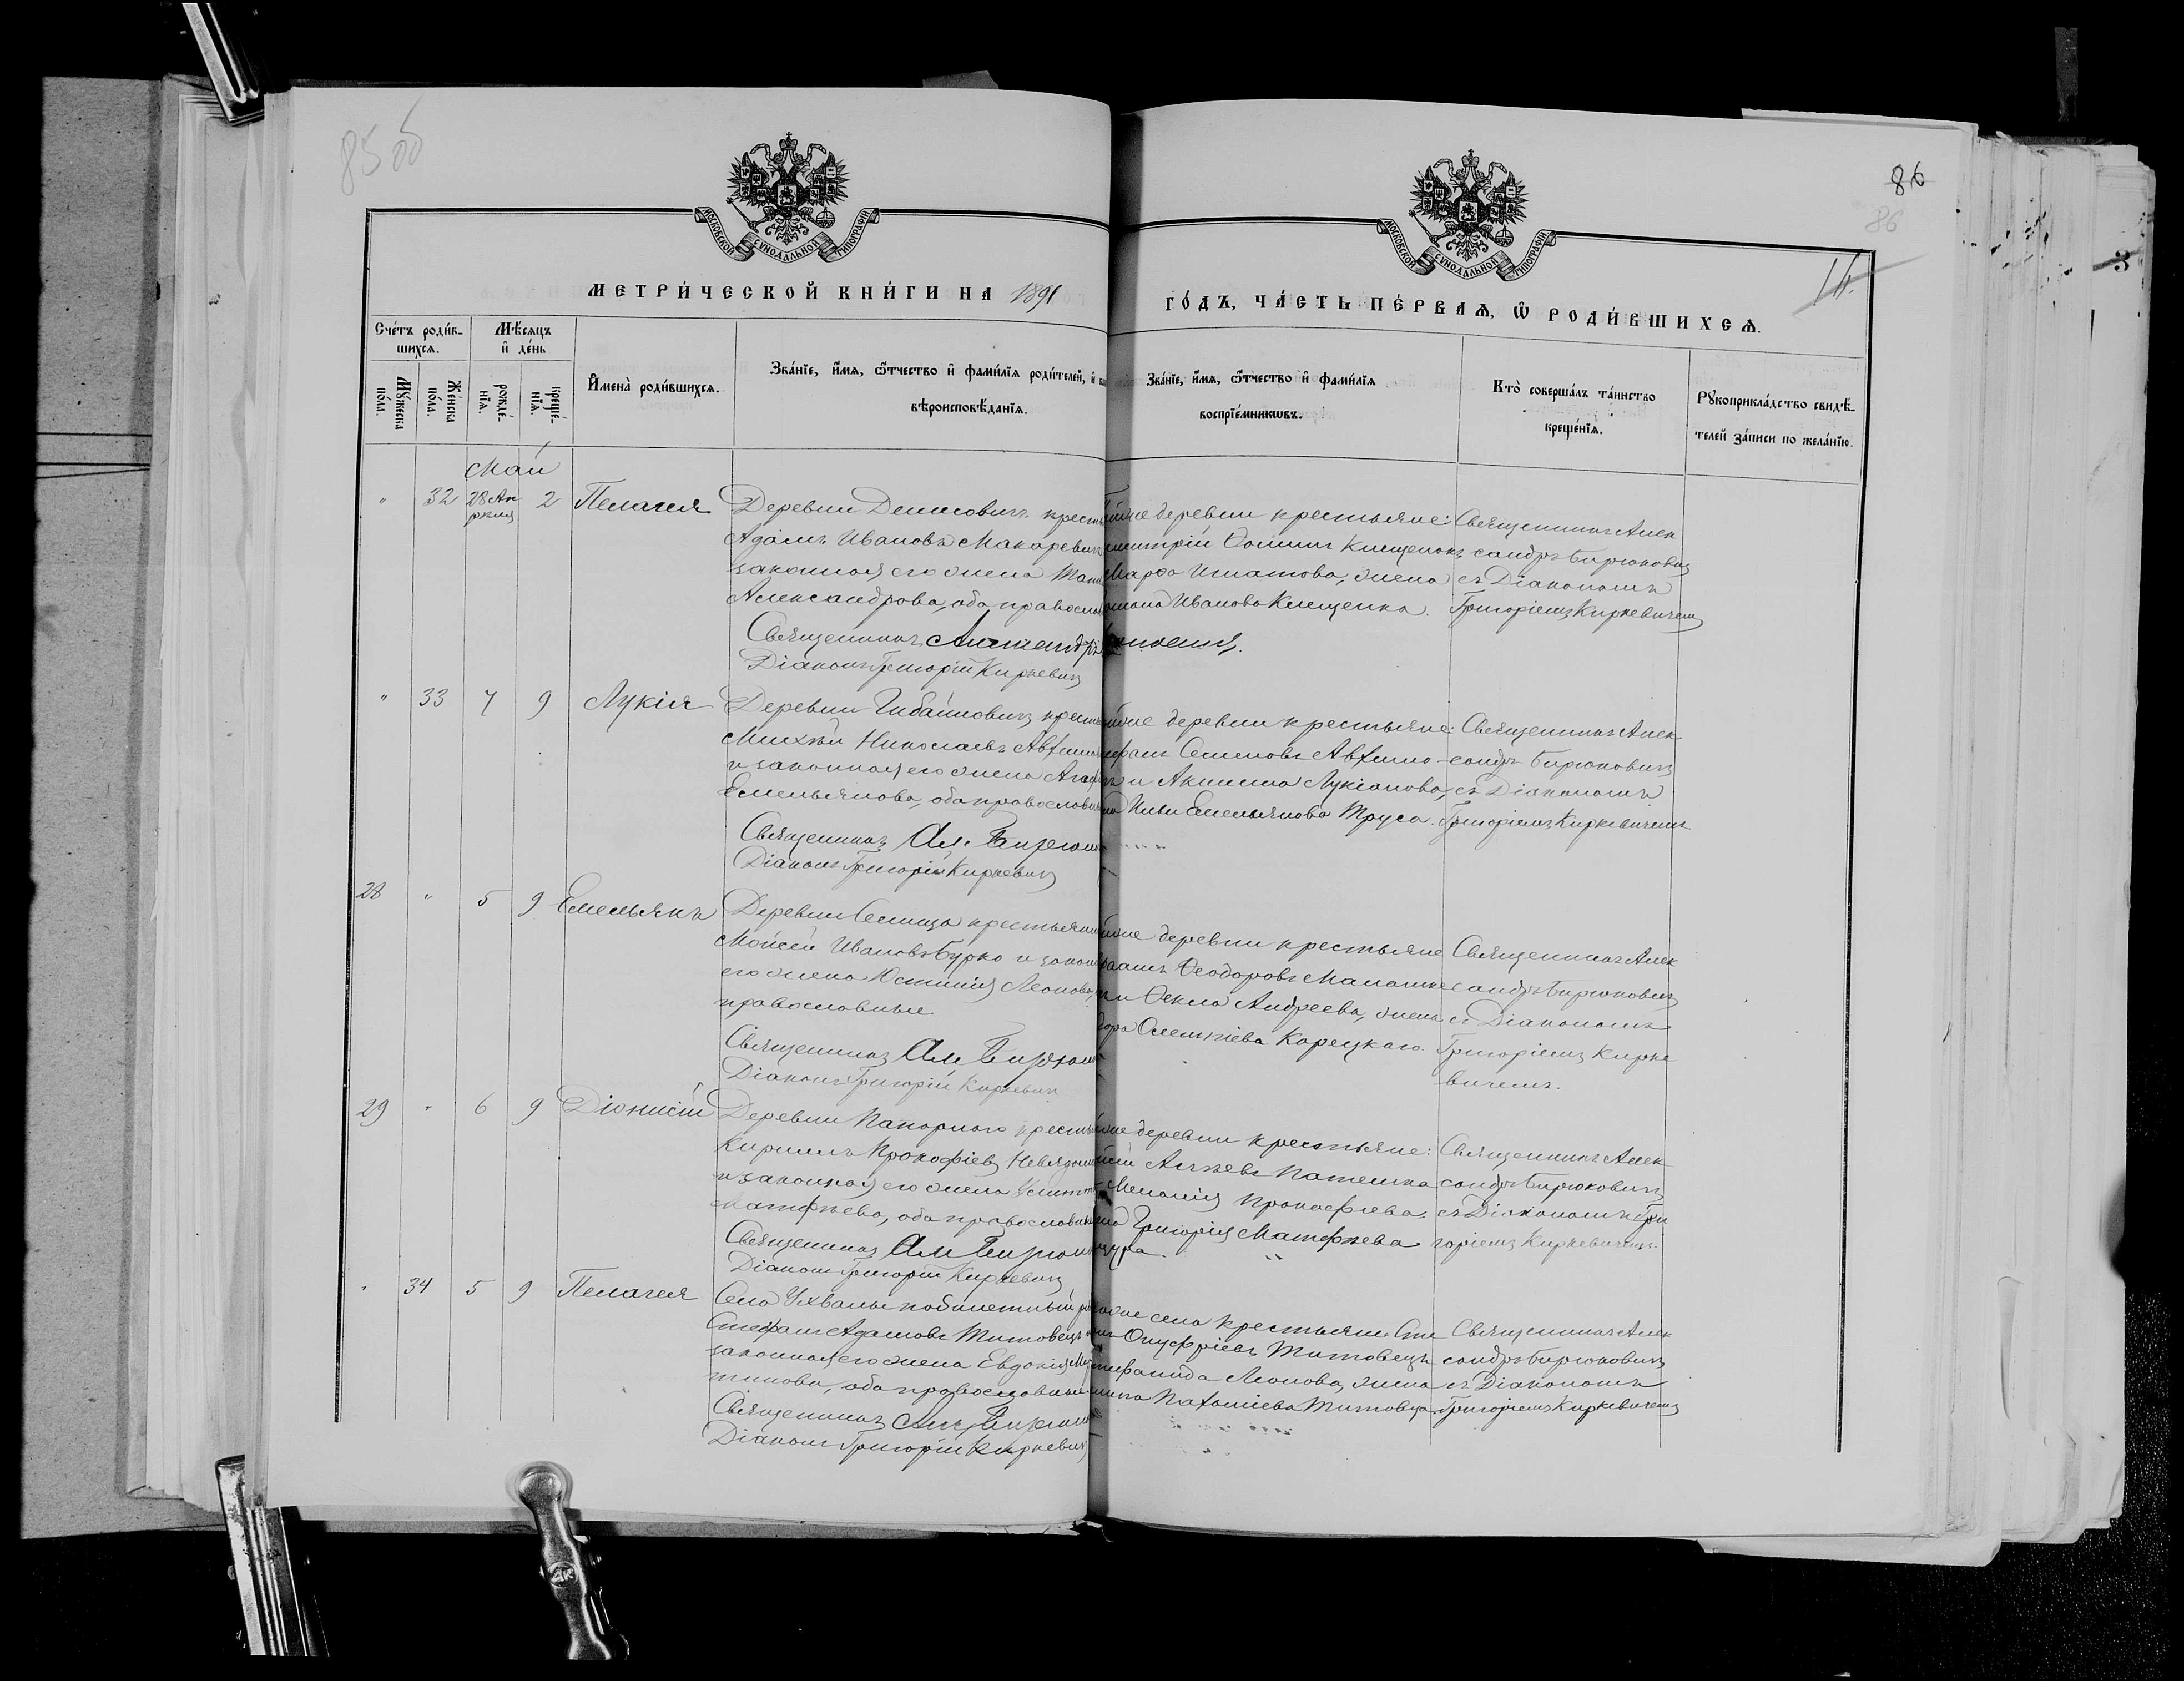 85 об
86
86
16.
МОСКОВСКОЙ СѴНОДАЛЬНОЙ ТИПОГРАФІИ
МОСКОВСКОЙ СѴНОДАЛЬНОЙ ТИПОГРАФІИ
МЕТРИ́ЧЕСКОЙ КНИ́ГИ НА 1891
ГО́ДЪ, ЧА́СТЬ ПЕ́РВАѦ, Ѿ РОДИ́ВШИХСѦ.
Сче́тъ роди́в-
шихсѧ.
Мѣ́сѧцъ
и де́нь
Мꙋ́жеска по́ла.
Же́нска по́ла.
рожде́-нїѧ.
креще́-нїѧ.
Имена̀ роди́вшихсѧ.
Зва́нїе, и́мѧ, ѻ́тчество и фами́лїѧ роди́телей, и
вѣроисповѣ́данїѧ.
Зва́нїе, и́мѧ, ѻ́тчество и фами́лїѧ
воспрїе́мникѡвъ.
Кто̀ соверша́лъ та́инство
креще́нїѧ.
Рꙋкоприкла́дство свидѣ́-
телей за́писи по жела́нїю.
Май
" 32 28 Ап
рѣля 2 Пелагея
Деревни Денисовичъ крест
Адамъ Ивановъ Макаревич
законная его жена
Александрова, оба правосл
Священникъ Александръ
Діаконъ Григорій Киркевич
деревни крестьяне:
Ѳоминъ Клещенокъ
Марѳа Игнатова, жена
Иванова Клещенка.
Священникъ Алек
сандръ Бирюкович
съ Діакономъ
Григоріемъ Киркевичем
" 33 7 9 Лукія
Деревни Гибайловичъ, крест
Михаил Николаевъ
и законная его жена Агаф
Емельянова, оба православ
Священникъ Ал. Бирюк
Діаконъ Григорій Киркевич
деревни крестьяне:
Семеновъ
и Акилина Лукіанова,
Ильи Емельянова Труса.
Священникъ Алек
сандръ Бирюковичъ
съ Діакономъ
Григоріемъ Киркевичемъ
28 " 5 9 Емельянъ
Деревни Селища крестьянин
Мойсей Ивановъ Бурко и закон
его жена Юстинія Леонова,
православные.
Священникъ Ал. Бирюк
Діаконъ Григорій Киркевич
деревни крестьяне
Ѳеодоровъ
и Ѳекла Андреева, жена
Карецкаго.
Священникъ Алек
сандръ Бирюкович
съ Діакономъ
Григоріемъ Кирке
вичемъ.
29 " 6 9 Діонисій
Деревни Напорного крест
Кирилъ Прокофіевъ
и законная его жена
Матѳѣева, оба православн
Священникъ Ал. Бирюк
Діаконъ Григорій Киркевич
деревни крестьяне:
Меланія Прокофіева
Григорія Матѳѣева
Священникъ Алек
сандръ Бирюковичъ
съ Діакономъ Гри
горіемъ Киркевичемъ.
" 34 5 9 Пелагея
Села Ухвалы побилетный
Стефанъ Адамовъ Титовецъ
законная его жена Евдокія
тинова, оба православные
Священникъ Ал. Бирюк
Діаконъ Григорій Киркевич
села крестьяне Сте
Онуфріевъ Титовецъ
Леонова, жена
Пахоміева Титовца.
Священникъ Алек
сандръ Бирюковичъ
съ Діакономъ
Григоріемъ Киркевичем